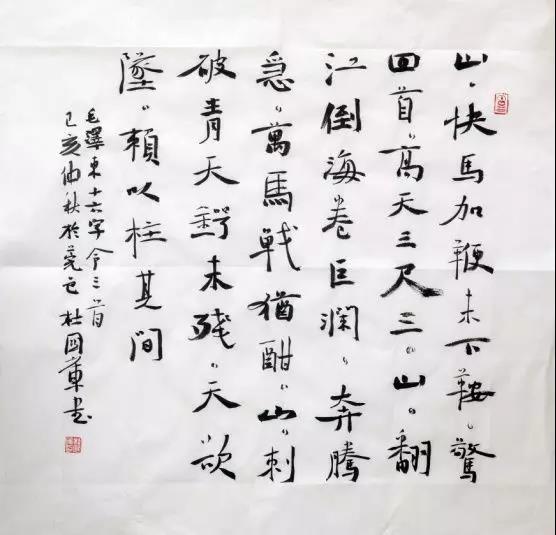 山。快馬加鞭未下鞍。驚
回首。离天三尺三。山。翻
江倒海卷巨瀾。奔騰
急。萬馬戰猶酣。山。刺
破青天鍔未殘。天欲
墜。賴以柱其間
毛澤東十六字令三首
己亥仲秋於莞邑杜國軍書